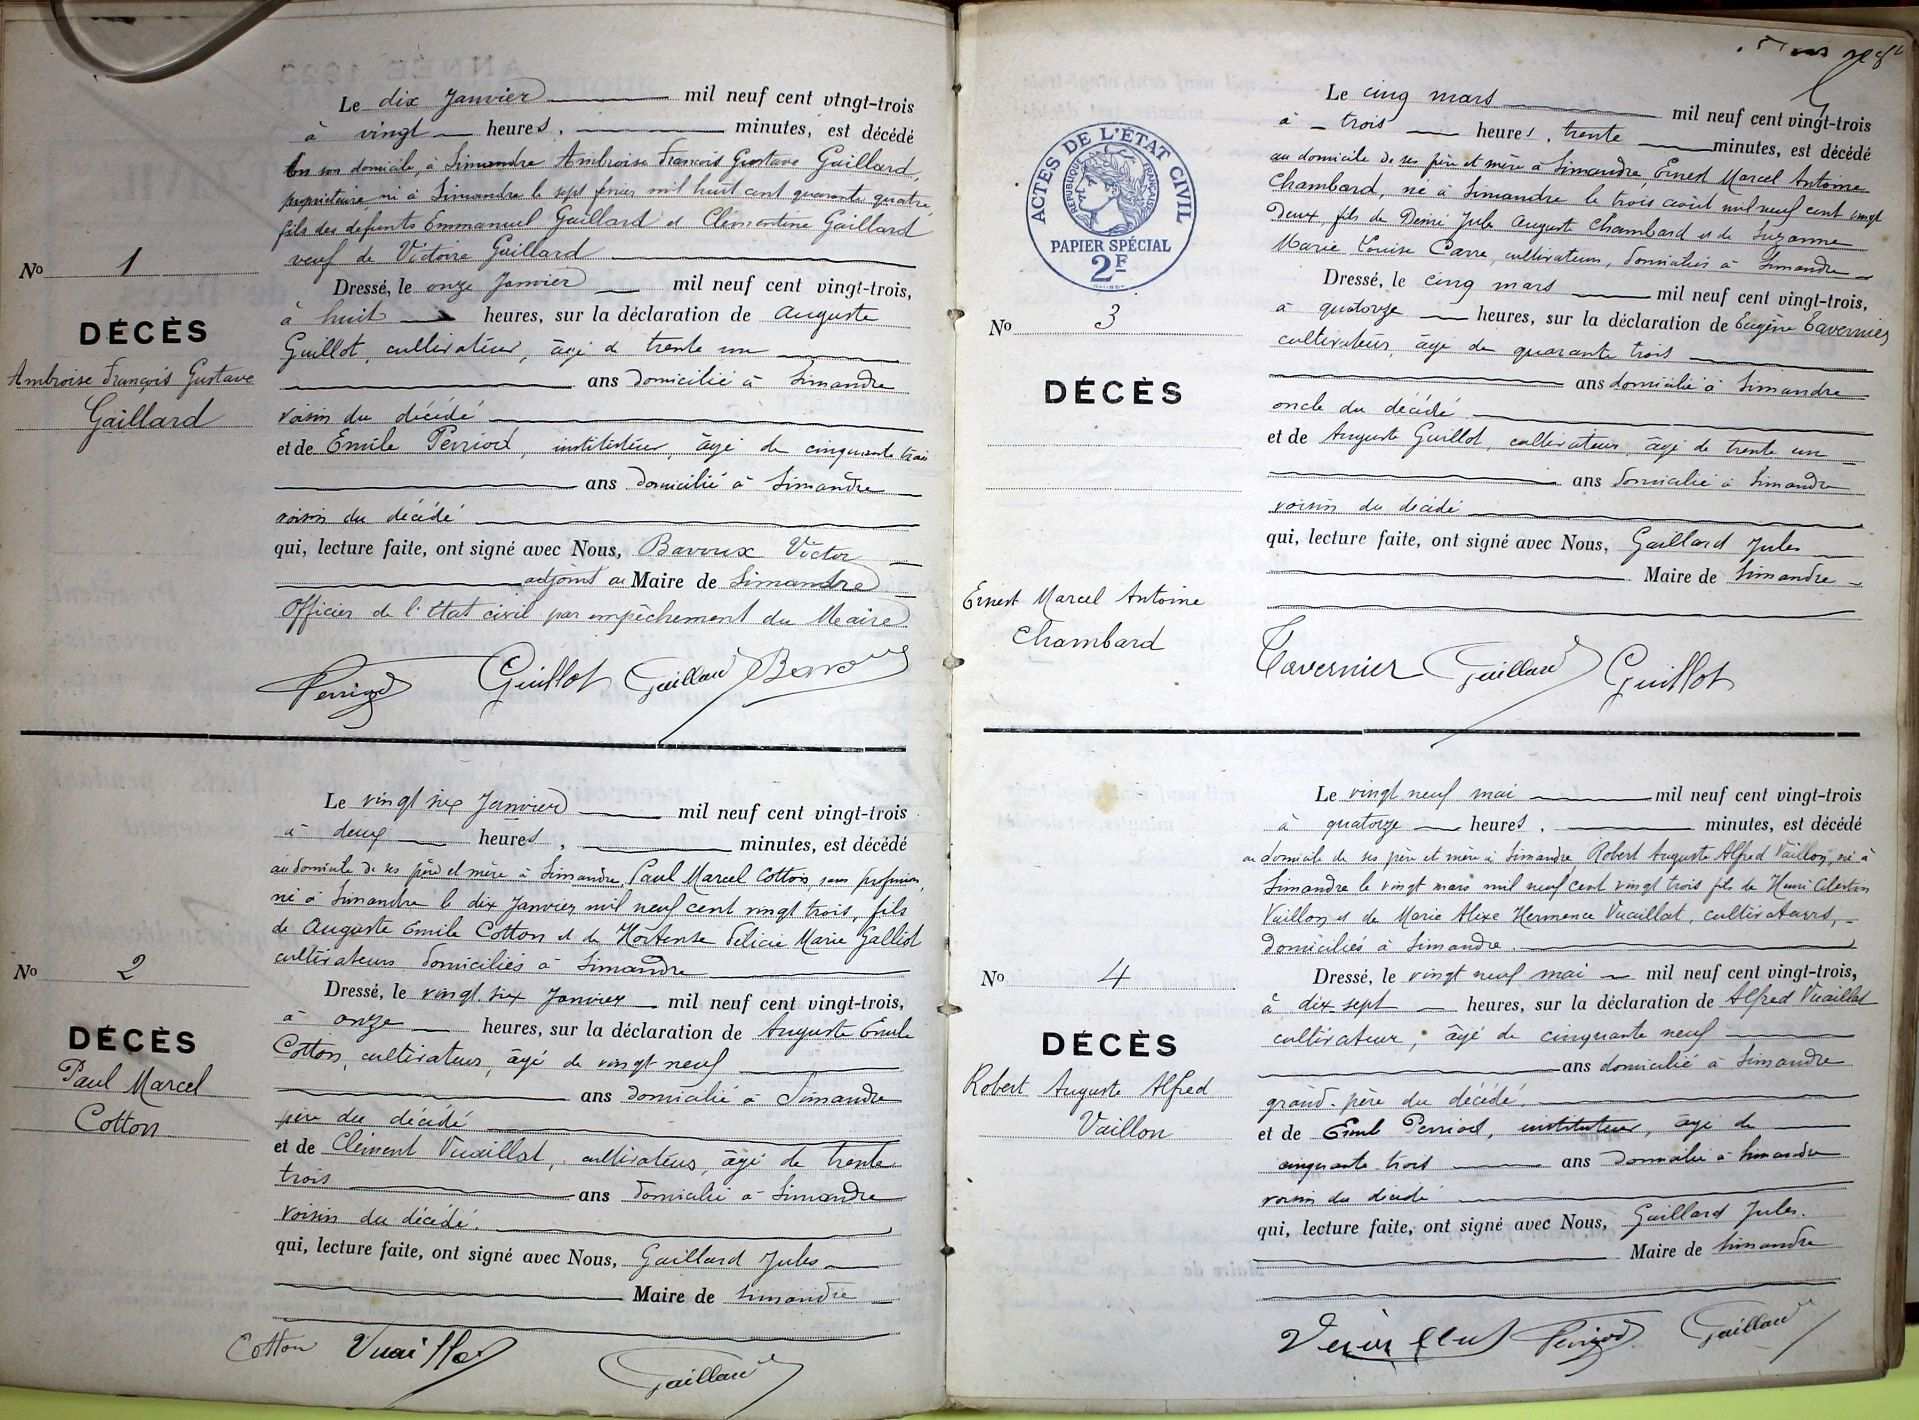 Le dix Janvier mil neuf cent vingt-trois
à vingt heures, minutes, est décédé
en son domicile, à Simandre Ambroise François Gustave Gaillard,
propriétaire né à Simandre le sept février mil huit cent quarante quatre,
fils des defunts Emmanuel Gaillard et Clémentine Gaillard
veuf de Victoire Guillard
No 1
Dressé, le onze Janvier mil neuf cent vingt-trois,
à huit heures, sur la déclaration de Auguste
DÉCÈS
Guillot, cultivateur, âgé de trente un
Ambroise François Gustave
Gaillard
ans domicilié à Simandre
voisin du décédé
et de Emile Perriod, instituteur, âgé de cinquante trois
ans domicilié à Simandre
voisin du décédé
qui, lecture faite, ont signé avec Nous, Bavoux Victor
adjoint au Maire de Simandre
Officier de l'état civil par empêchement du Maire
Perriod Guillot Gaillard Bavoux
Le vingt six Janvier mil neuf cent vingt-trois
à deux heures, minutes, est décédé
au domicile de ses père et mère à Simandre, Paul Marcel Cotton, sans profession,
né à Simandre le dix Janvier mil neuf cent vingt trois, fils
de Auguste Emile Cotton et de Hortense Félicie Marie Galliot
cultivateurs domiciliés à Simandre
No 2
Dressé, le vingt six Janvier mil neuf cent vingt-trois,
à onze heures, sur la déclaration de Auguste Emile
DÉCÈS
Cotton, cultivateur, âgé de vingt neuf
Paul Marcel
Cotton
ans domicilié à Simandre
père du décédé
et de Clément Vuaillat, cultivateur, âgé de trente
trois ans domicilié à Simandre
voisin du décédé.
qui, lecture faite, ont signé avec Nous, Gaillard Jules
Maire de Simandre
Cotton Vuaillat
Gaillard
ACTES DE L'ÉTAT CIVIL
RÉPUBLIQUE FRANÇAISE
PAPIER SPÉCIAL
2F
Le cinq mars mil neuf cent vingt-trois
à trois heures, trente minutes, est décédé
au domicile de ses père et mère à Simandre, Ernest Marcel Antoine
Chambard, né à Simandre le trois août mil neuf cent vingt
deux, fils de Désiré Jules Auguste Chambard et de Suzanne
Marie Louise Carre, cultivateurs, domiciliés à Simandre
No 3
Dressé, le cinq mars mil neuf cent vingt-trois,
à quatorze heures, sur la déclaration de Eugène Tavernier
DÉCÈS
cultivateur, âgé de quarante trois
ans domicilié à Simandre
oncle du décédé
et de Auguste Guillot, cultivateur, âgé de trente un
ans domicilié à Simandre
voisin du décédé
qui, lecture faite, ont signé avec Nous, Gaillard Jules
Maire de Simandre
Ernest Marcel Antoine
Chambard
Tavernier Gaillard Guillot
Le vingt neuf mai mil neuf cent vingt-trois
à quatorze heures, minutes, est décédé
au domicile de ses père et mère à Simandre Robert Auguste Alfred Vaillon, né à
Simandre le vingt mars mil neuf cent vingt trois fils de Henri Célestin
Vaillon et de Marie Alixe Hermence Vuaillat, cultivateurs,
domiciliés à Simandre.
No 4
Dressé, le vingt neuf mai mil neuf cent vingt-trois,
à dix-sept heures, sur la déclaration de Alfred Vuaillat
DÉCÈS
cultivateur, âgé de cinquante neuf
Robert Auguste Alfred
Vaillon
ans domicilié à Simandre
grand-père du décédé.
et de Emile Perriod, instituteur, âgé de
cinquante trois ans domicilié à Simandre
voisin du décédé
qui, lecture faite, ont signé avec Nous, Gaillard Jules.
Maire de Simandre
Vuaillat Perriod Gaillard